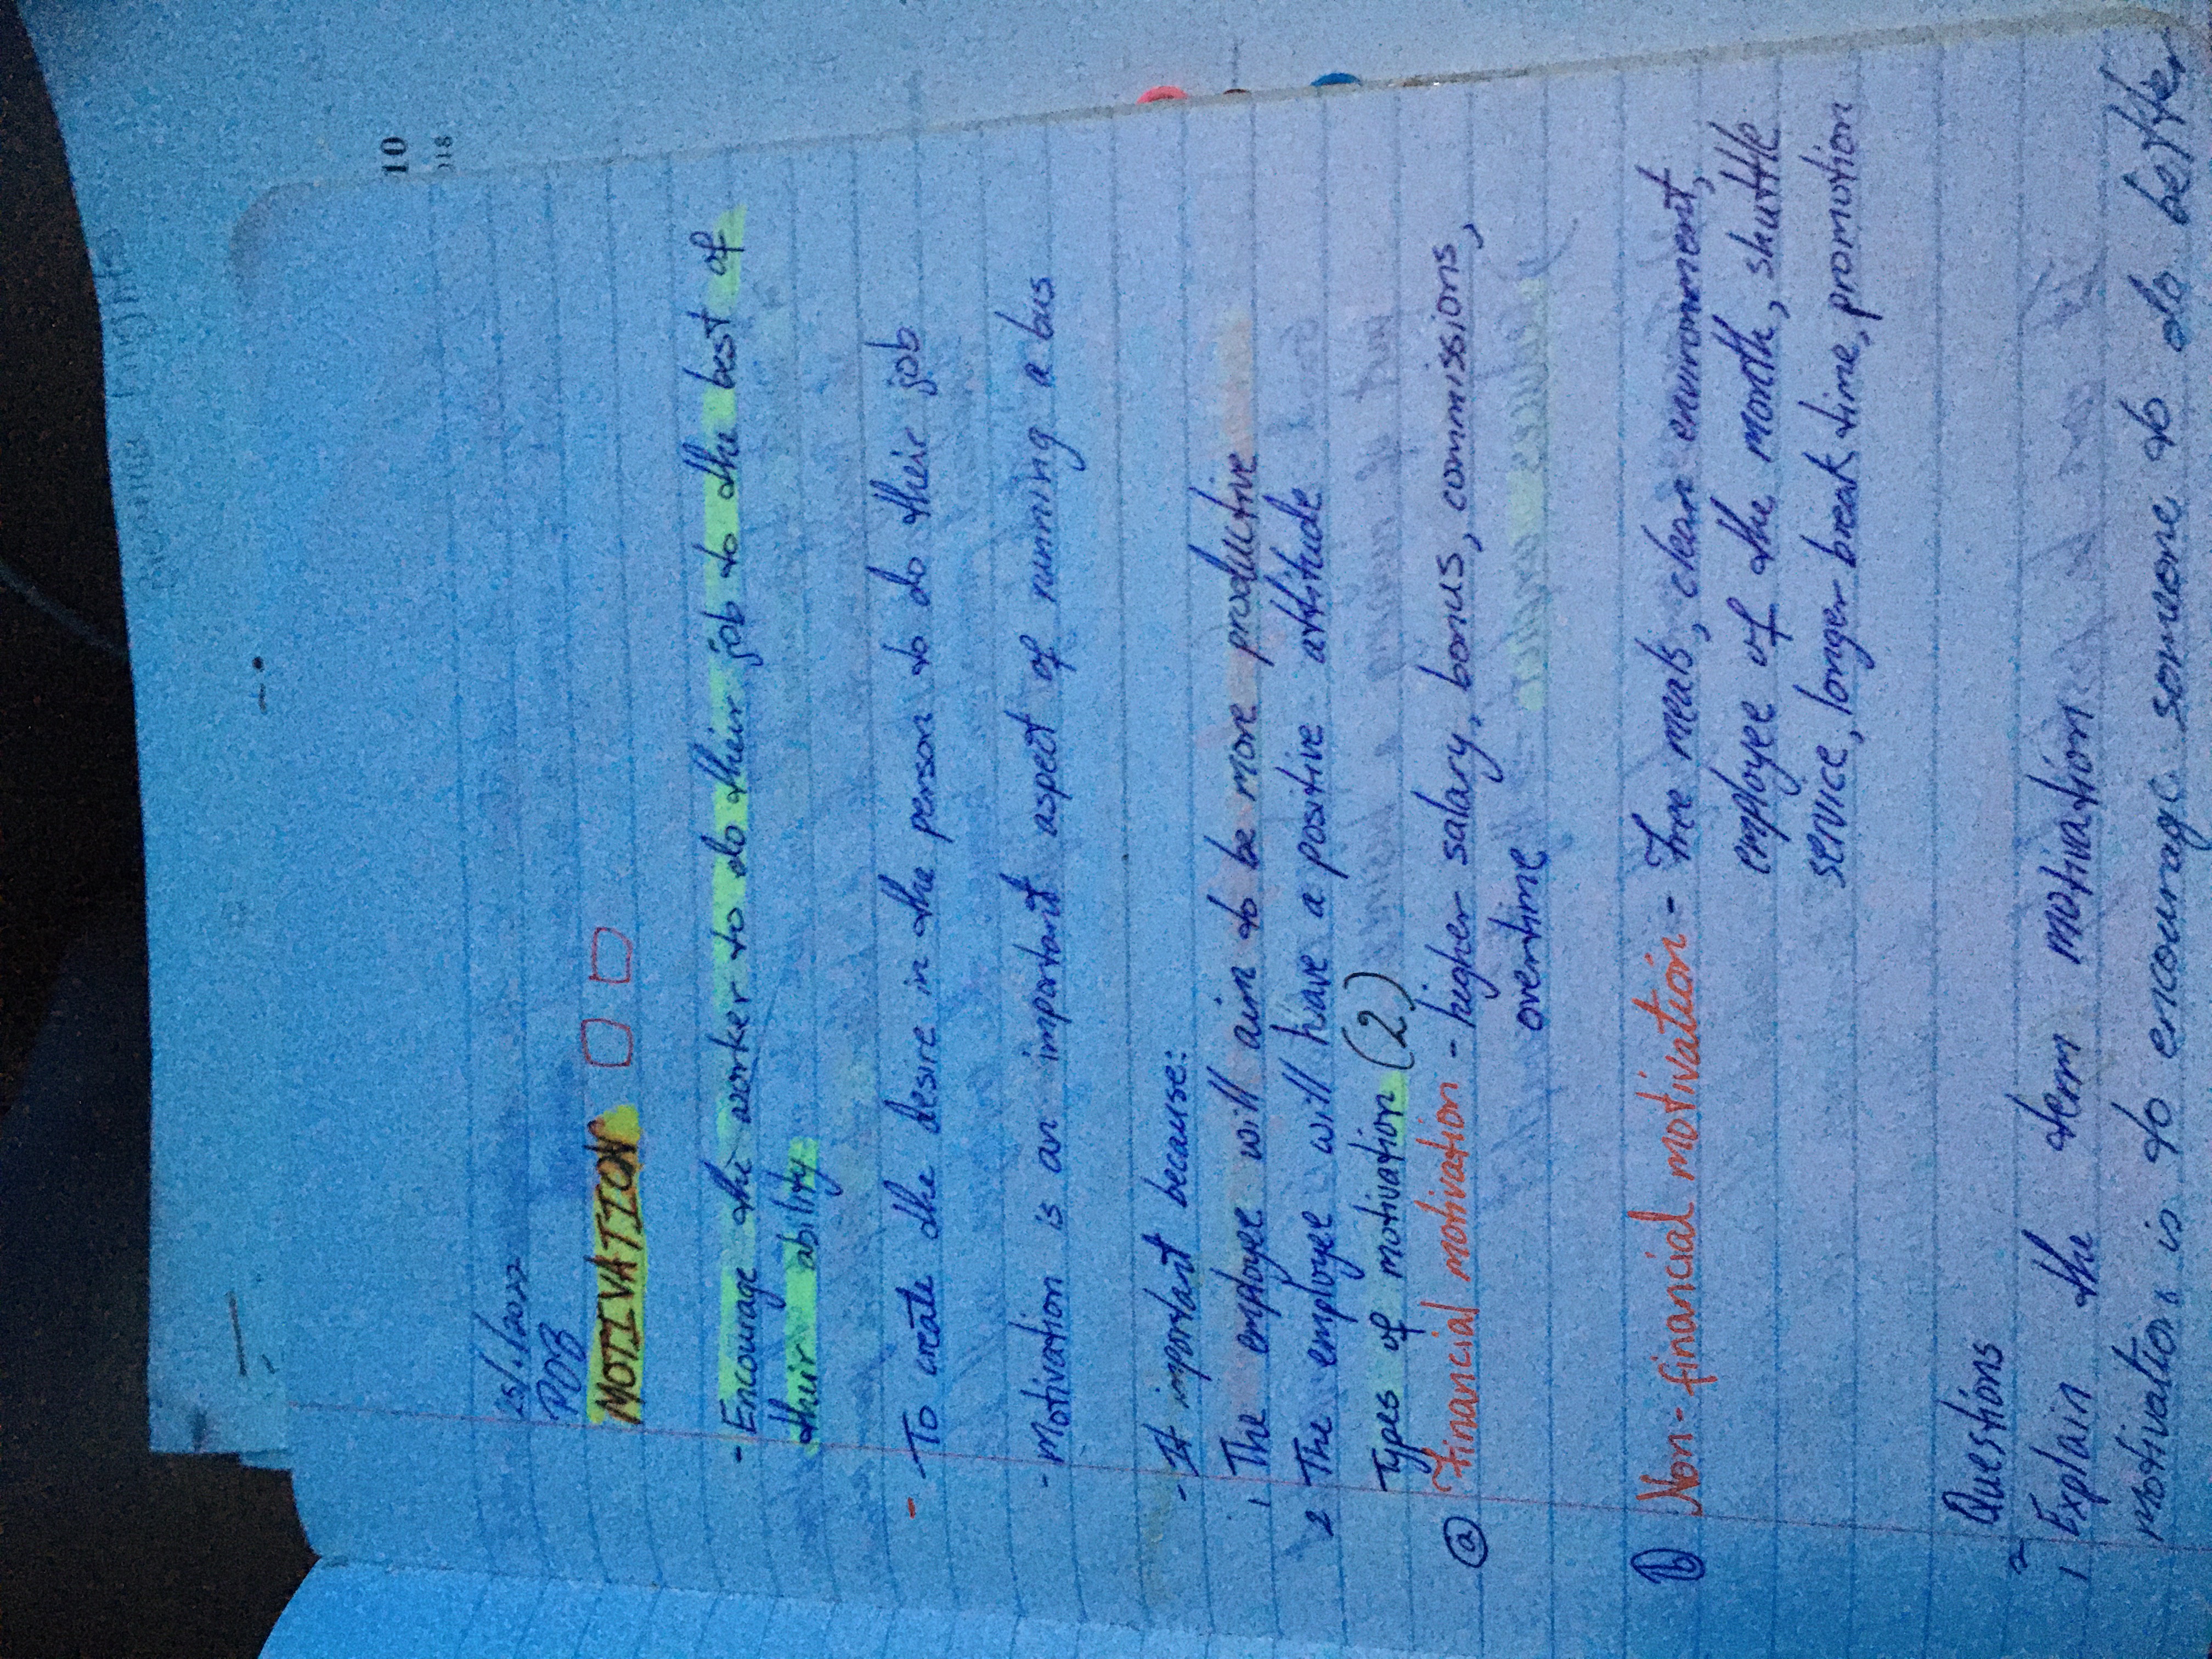 10
018
25/1/2022
POB
MOTIVATION
- Encourage the worker to do their job to the best of
their ability
- To create the desire in the person to do their job
- Motivation is an important aspect of running a bus
- It important because:
1 The employee will aim to be more productive
2 The employee will have a positive attitude
Types of motivation (2)
a Financial motivation - higher salary, bonus, commissions,
overtime
b Non-financial motivation - Free meals, clean environment,
employee of the month, shuttle
service, longer break time, promotion
Questions
1 Explain the term motivation
motivation is to encourage someone to do better